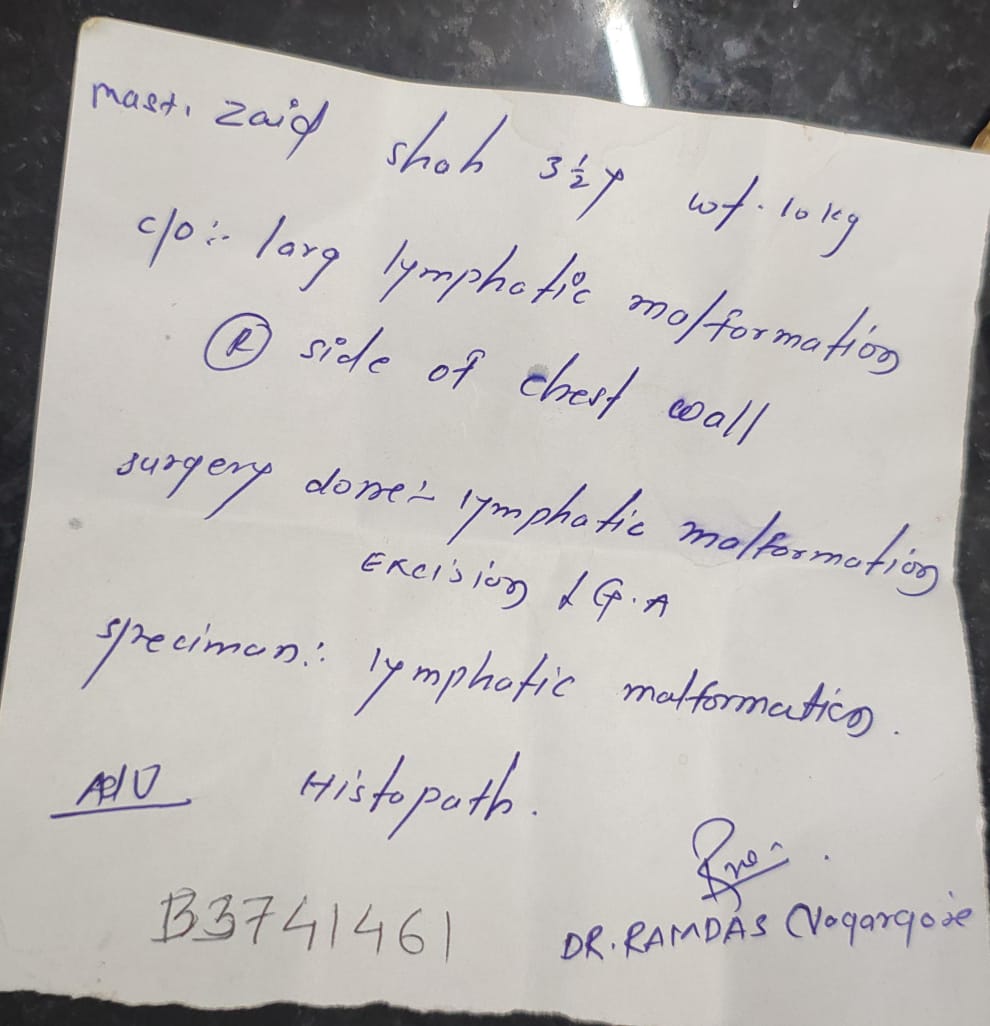 mast. Zaid shah 3½y wt. 10 kg
c/o:- larg lymphatic malformation
(R) side of chest wall
surgery done:- lymphatic malformation
Excision ↓ G.A
speciman:- lymphatic malformation.
Adv Histopath.
DR. RAMDAS Nagargoje
B3741461